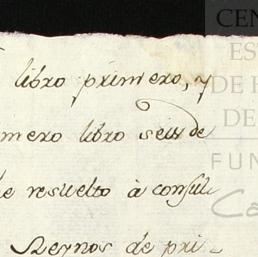 libro primero, y
mero libro seis de
resuelto à consul
Reynos de pri
CEN
ES
DE H
DE
FUN
Ca